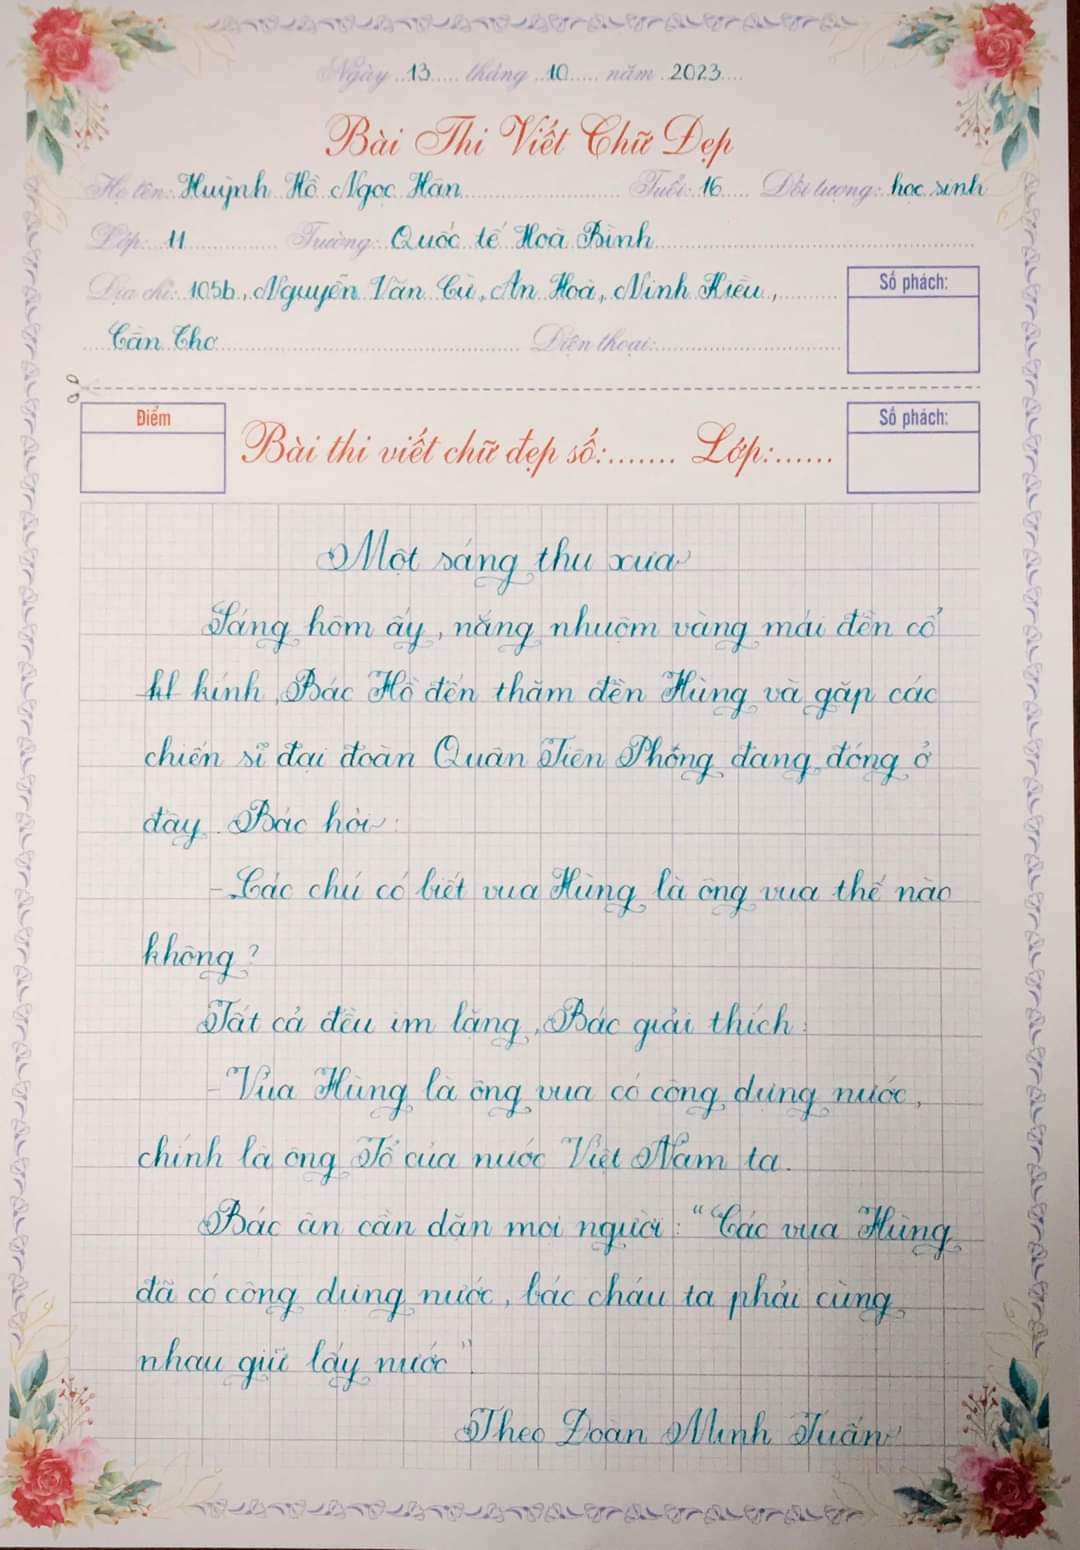 Ngày 13 tháng 10 năm 2023
Bài Thi Viết Chữ Đẹp
Họ tên: Huỳnh Hồ Ngọc Hân Tuổi: 16 Đối tượng: học sinh
Lớp: 11 Trường: Quốc tế Hoà Bình
Địa chỉ: 105b, Nguyễn Văn Cừ, An Hoà, Ninh Kiều,
Số phách:
Cần Thơ Điện thoại:
Điểm
Bài thi viết chữ đẹp số:....... Lớp:......
Số phách:
Một sáng thu xưa
Sáng hôm ấy, nắng nhuộm vàng mái đền cổ
kí kính, Bác Hồ đến thăm đền Hùng và gặp các
chiến sĩ đại đoàn Quân Tiên Phong đang đóng ở
đây. Bác hỏi:
- Các chú có biết vua Hùng là ông vua thế nào
không?
Tất cả đều im lặng, Bác giải thích:
- Vua Hùng là ông vua có công dựng nước,
chính là ông Tổ của nước Việt Nam ta.
Bác ân cần dặn mọi người: "Các vua Hùng
đã có công dựng nước, bác cháu ta phải cùng
nhau giữ lấy nước".
Theo Đoàn Minh Tuấn